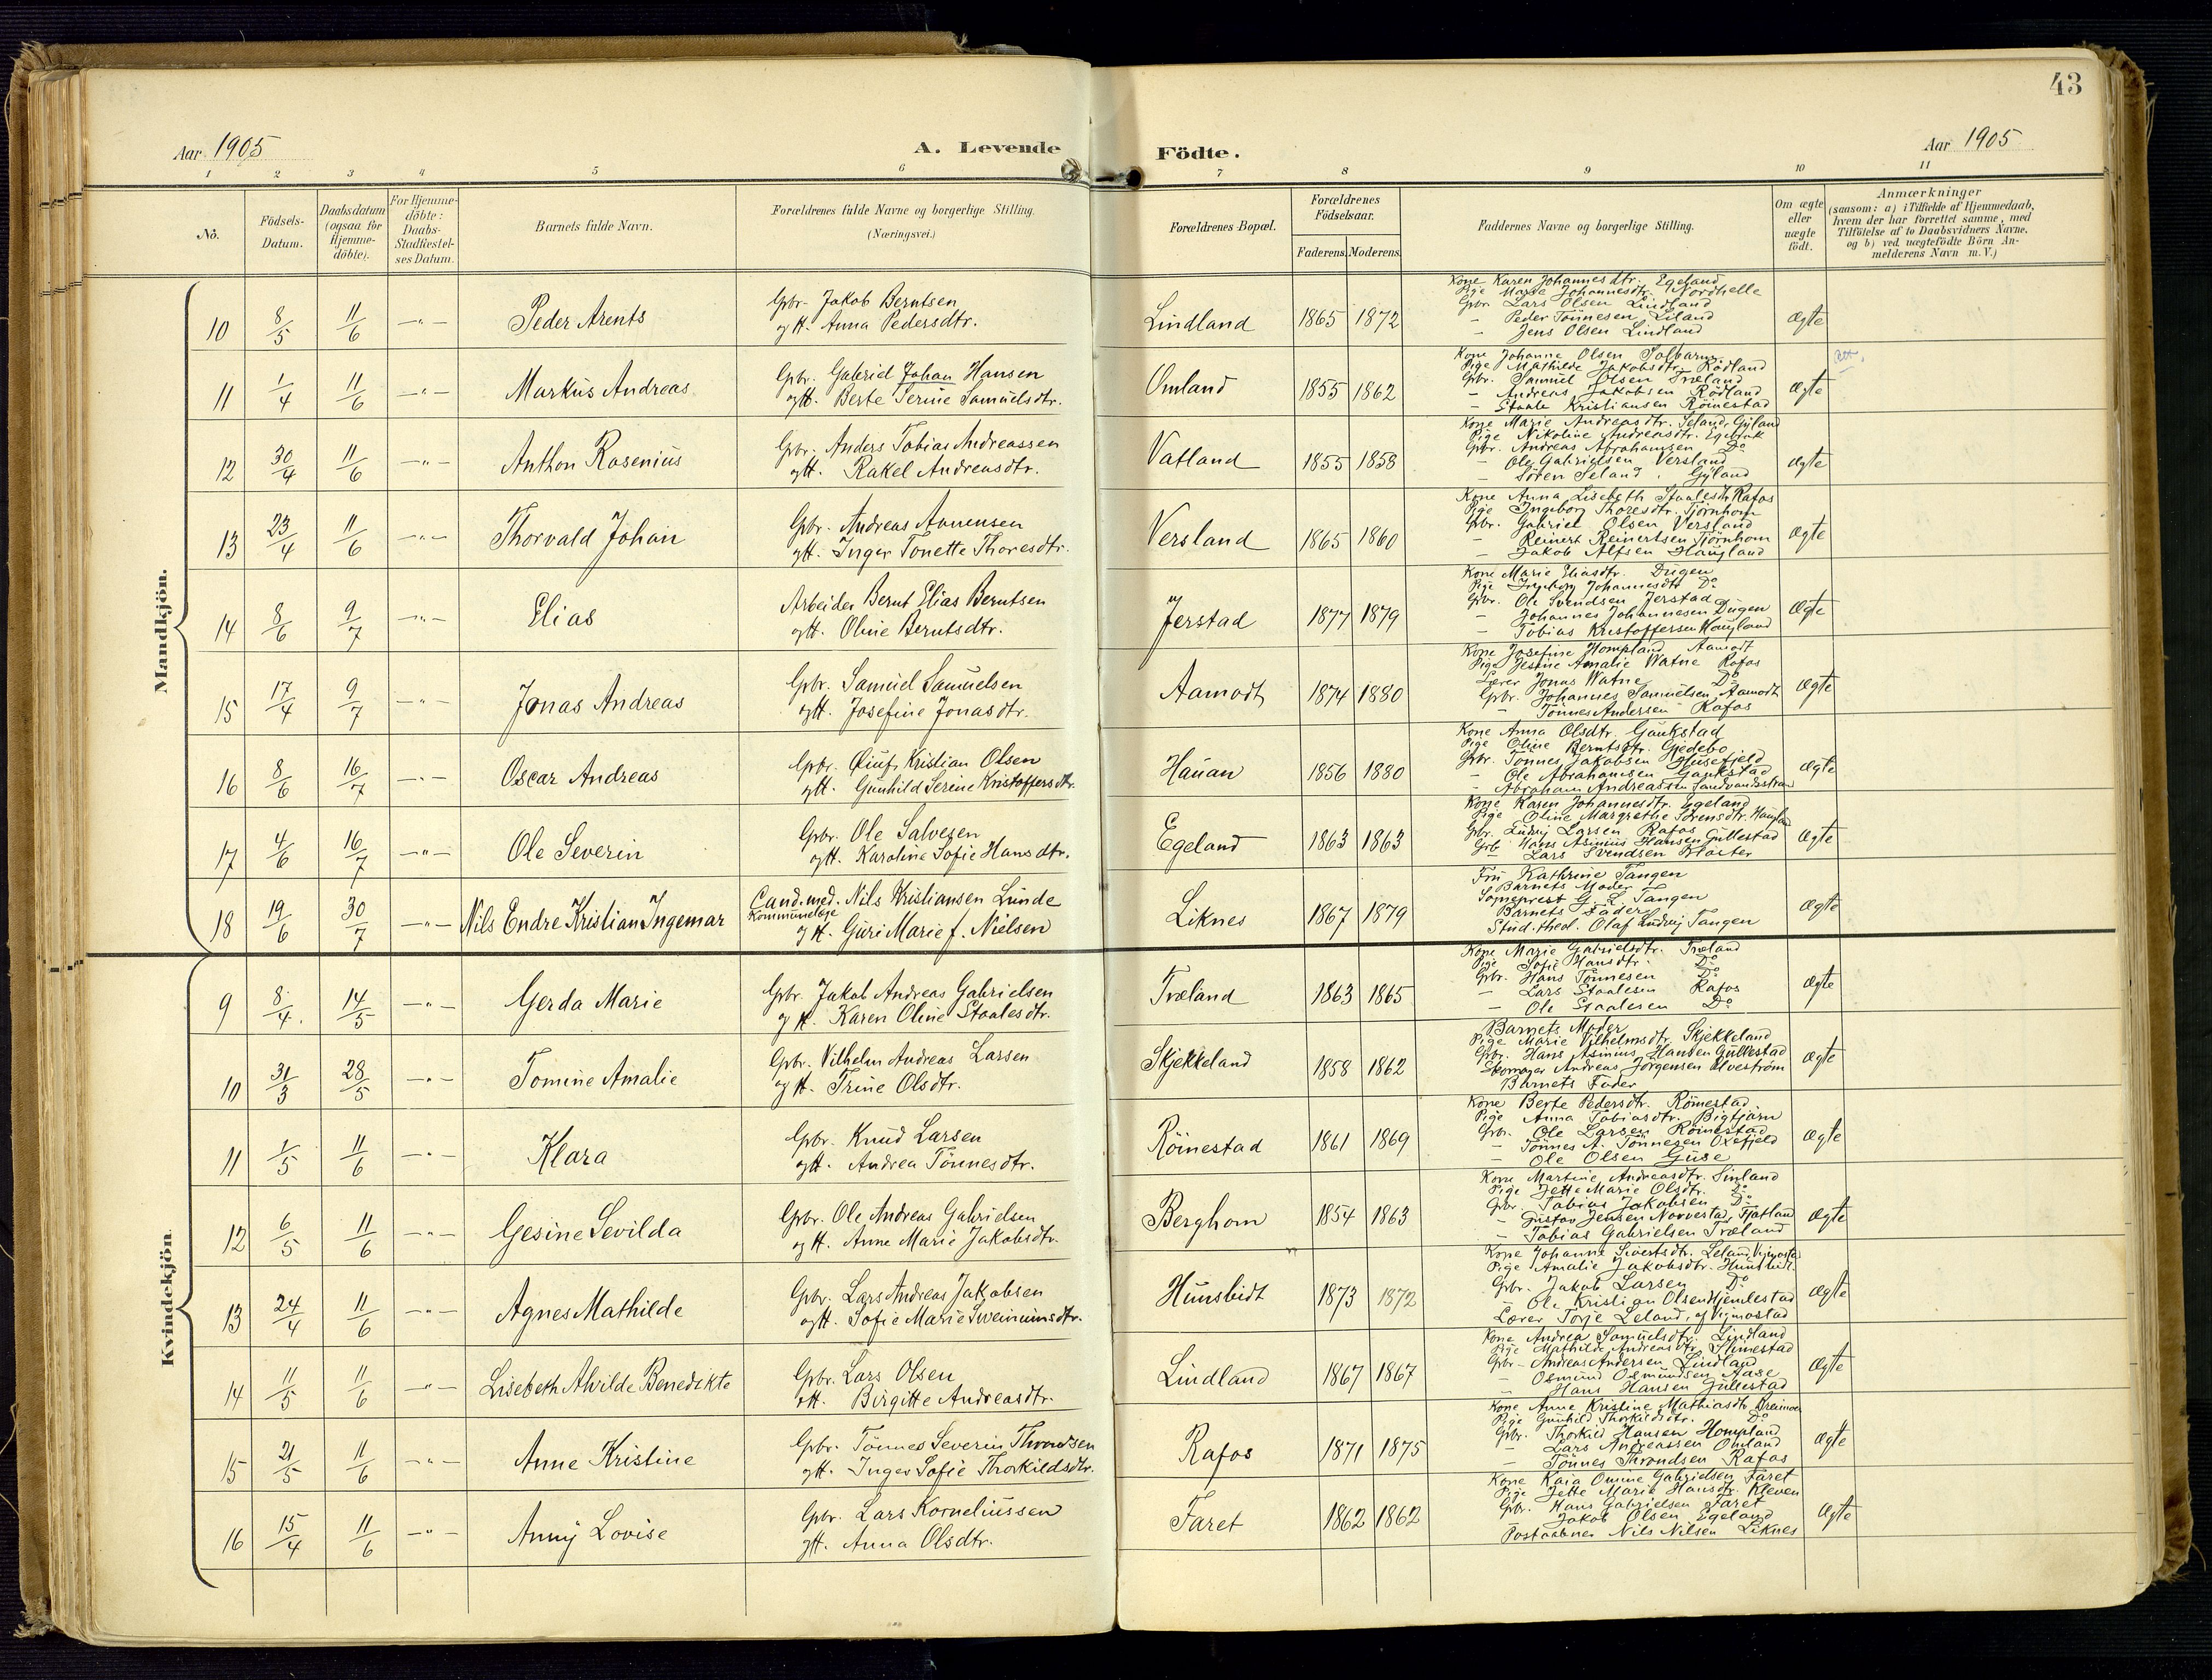 43
Aar 1905
A. Levende Födte.
Aar 1905
1 2 3 4 5 6 7 8 9 10 11
No.
Födsels-Datum.
Daabsdatum (ogsaa for Hjemme-döbte).
For Hjemme-döbte: Daabs-Stadfæstel-ses Datum.
Barnets fulde Navn.
Forældrenes fulde Navne og borgerlige Stilling.
(Næringsvei.)
Forældrenes Bopæl.
Forældrenes Födselsaar.
Faderens. Moderens.
Faddernes Navne og borgerlige Stilling.
Om ægte eller uægte födt.
Anmærkninger
(saasom: a) i Tilfælde af Hjemmedaab,
hvem der har forrettet samme, med
Tilföielse af to Daabsvidners Navne,
og b) ved uægtefödte Börn An-
melderens Navn m. V.)
Mandkjön.
10 8/5 11/6 —"— Peder Arents
Gbr. Jakob Berntsen
og H. Anna Pedersdtr.
Lindland 1865 1872
Kone Karen Johannesdtr. Egeland
Pige Marie Johannesdtr. Nordhelle
Gbr. Lars Olsen Lindland
— Peder Tönnesen Eiland
— Jens Olsen Lindland
Ægte
11 1/4 11/6 —"— Markus Andreas
Gbr. Gabriel Johan Hansen
og H. Berte Serine Samuelsdtr.
Omland 1855 1862
Kone Johanne Olsen
Pige Mathilde Jakobsdtr. Rödland
Gbr. Samuel Olsen Træland
— Andreas Jakobsen Rödland
— Staale Kristiansen Röinestad
Ægte
12 30/4 11/6 —"— Anthon Rosenius
Gbr. Anders Tobias Andreassen
og H. Rakel Andreasdtr.
Vatland 1855 1858
Kone Marie Andreasdtr. Seland Gyland
Pige Nikoline Andreasdtr.
Gbr. Andreas Abrahamsen Do
— Ole Gabrielsen Versland
— Sören Seland, Gyland
Ægte
13 23/4 11/6 —"— Thorvald Johan
Gbr. Andreas Aanensen
og H. Inger Tonette Thoresdtr.
Versland 1865 1860
Kone Anna Lisebeth Staalesdtr. Rafos
Pige Ingeborg Thoresdtr. Tjörnhom
Gbr. Gabriel Olsen Versland
— Reinert Reinertsen Tjörnhom
— Jakob Alfsen Haugland
Ægte
14 8/6 9/7 —"— Elias
Arbeider Bernt Elias Berntsen
og H. Oline Berntsdtr.
Jerstad 1877 1879
Kone Marie Eliasdtr. Dugen
Pige Ingeborg Johannesdtr. Do
Gbr. Ole Svendsen Jerstad
— Johannes Johannesen Dugen
— Tobias Kristoffersen Haugland
Ægte
15 17/4 9/7 —"— Jonas Andreas
Gbr. Samuel Samuelsen
og H. Josefine Jonasdtr.
Aamodt 1874 1880
Kone Josefine Hompland Aamodt
Pige Jesine Amalie Watne Rafos
Lærer Jonas Watne Do
Gbr. Johannes Samuelsen Aamodt
— Tönnes Andersen Rafos
Ægte
16 8/6 16/7 —"— Oscar Andreas
Gbr. Kristian Olsen
og H. Gunhild Serine Kristoffersdtr.
Hauan 1856 1880
Kone Anna Olsdtr. Gaukstad
Pige Oline Berntsdtr. Gjedebo
Gbr. Tönnes Jakobsen Husefjeld
— Ole Abrahamsen Gaukstad
— Abraham Andreassen Sandvandsstrand
Ægte
17 4/6 16/7 —"— Ole Severin
Gbr. Ole Salvesen
og H. Karoline Sofie Hansdtr.
Egeland 1863 1863
Kone Karen Johannesdtr. Egeland
Pige Oline Margrethe Sörensdtr.
Gbr. Ludvig Larsen Rafos
Gbr. Hans Asinius Hansen Gullestad
— Lars Svendsen Kloster
Ægte
18 19/6 30/7 —"— Nils Endre Kristian Ingemar
Cand. med. Nils Kristiansen Lunde
Kommunelæge
og H. Guri Marie f. Nielsen
Liknes 1867 1879
Fru Kathrine Tangen
Barnets Moder
Sogneprest G. L. Tangen
Barnets Fader
Stud. theol. Olaf Ludvig Tangen
Ægte
Kvindekjön.
9 8/4. 14/5 —"— Gerda Marie
Gbr. Jakob Andreas Gabrielsen
og H. Karen Oline Staalesdtr.
Træland 1863 1865
Kone Marie Gabrielsdtr. Træland
Pige Sofie Hansdtr. Do
Gbr. Hans Tönnesen Do
— Lars Staalesen Rafos
— Ole Staalesen Do
Ægte
10 31/3 28/5 —"— Tomine Amalie
Gbr. Vilhelm Andreas Larsen
og H. Trine Olsdtr.
Skjekkeland 1858 1862
Barnets Moder
Pige Marie Vilhelmsdtr. Skjekkeland
Gbr. Hans Asinius Hansen Gullestad
Skomager Andreas Jörgensen Elveström
Barnets Fader
Ægte
11 1/5 11/6 —"— Klara
Gbr. Knud Larsen
og H. Andrea Tönnesdtr.
Röinestad 1861 1869
Kone Berte Pedersdtr. Röinestad
Pige Anna Tobiasdtr. Bigtjærn
Gbr. Ole Larsen Röinestad
— Tönnes A. Tönnesen Oxefjeld
— Ole Olsen Guse
Ægte
12 6/5 11/6 —"— Gesine Sevilda
Gbr. Ole Andreas Gabrielsen
og H. Anne Marie Jakobsdtr.
Berghom 1854 1863
Kone Martine Andreasdtr. Sinland
Pige Jette Marie Olsdtr. Do
Gbr. Tobias Jakobsen Do
— Gustav Jensen Narvestad, Fjotland
— Tobias Gabrielsen Træland
Ægte
13 24/4 11/6 —"— Agnes Mathilde
Gbr. Lars Andreas Jakobsen
og H. Sofie Marie Sveinumsdtr.
Hunsbidt 1873 1872
Kone Johanne Sivertsdtr. Leland, Vigmostad
Pige Amalie Jakobsdtr. Hunsbidt
Gbr. Jakob Larsen Do
— Ole Kristian Olsen Hjemlestad
Lærer Torje Leland, af Vigmostad
Ægte
14 11/5 11/6 —"— Lisebeth Alvilde Benedikte
Gbr. Lars Olsen
og H. Birgitte Andreasdtr.
Lindland 1867 1867
Kone Andrea Samuelsdtr. Lindland
Pige Mathilde Andreasdtr. Slimestad
Gbr. Andreas Andersen Lindland
— Osmund Osmundsen Aase
— Hans Hansen Gullestad
Ægte
15 21/5 11/6 —"— Anne Kristine
Gbr. Tönnes Severin Throndsen
og H. Inger Sofie Thorkildsdtr.
Rafos 1871 1875
Kone Anne Kristine Mathiasdtr. Dreimoen
Pige Gunhild Thorkildsdtr. Do
Gbr. Thorkild Hansen Hompland
— Lars Andreassen Omland
— Tönnes Throndsen Rafos
Ægte
16 15/4 11/6 —"— Anny Lovise
Gbr. Lars Korneliussen
og H. Anna Olsdtr.
Faret 1862 1862
Kone Kaia Omine Gabrielsen Faret
Pige Jette Marie Hansdtr. Kleven
Gbr. Hans Gabrielsen Faret
— Jakob Olsen Egeland
Postaabner Nils Nilsen Liknes
Ægte